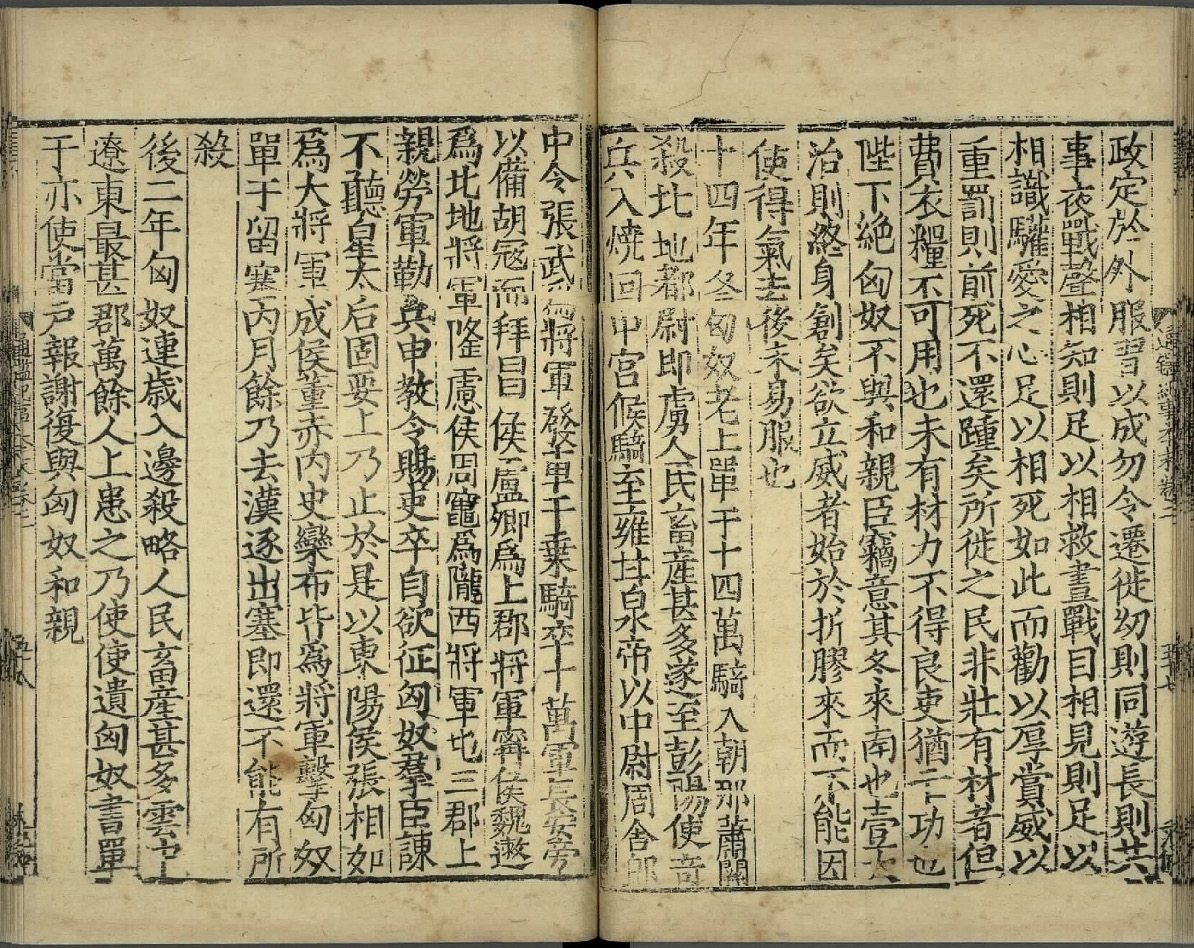 政定於外服習以成勿令遷徙幼則同遊長則共
事夜戰聲相知則足以相救晝戰目相見則足以
相識驩愛之心足以相死如此而勸以厚賞威以
重罰則前死不還踵矣所徙之民非壯有材者但
費衣糧不可用也未有材力不得良吏猶亡功也
陛下絶匈奴不與和親臣竊意其冬來南也壹大
治則終身創矣欲立威者始於折膠來而不能困
使得氣去後未易服也
十四年冬匈奴老上單于十四萬騎入朝那蕭關
殺北地都尉卬虜人民畜産甚多遂至彭陽使竒
兵入燒回中宮候騎至雍甘泉帝以中尉周舍郎
中令張武爲將軍發車千乗騎卒十萬軍長安旁
以備胡冦而拜昌侯盧卿爲上郡將軍甯侯魏遬
爲北地將軍隆慮侯周竈爲隴西將軍屯三郡上
親勞軍勒兵申教令賜吏卒自欲征匈奴羣臣諫
不聽皇太后固要上乃止於是以東陽侯張相如
爲大將軍成侯董赤内史欒布皆爲將軍擊匈奴
單于留塞内月餘乃去漢逐出塞即還不能有所
殺
後二年匈奴連歳入邊殺略人民畜産甚多雲中
遼東最甚郡萬餘人上患之乃使使遺匈奴書單
于亦使當戸報謝復與匈奴和親